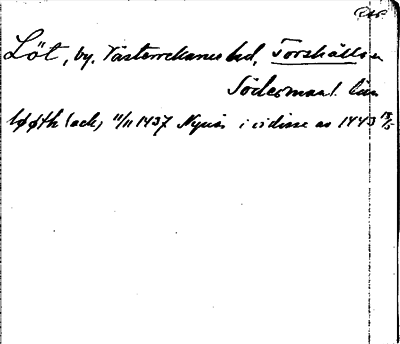 Löt, by. Västerrekarne hd, Torshälla sn
Södermanl. län
løøth (ack) 11/11 1437 Nyköp i vidisse av 1443 13/5